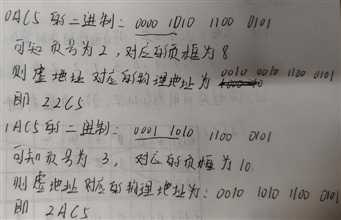 0AC5 的二进制: 0000 1010 1100 0101
可知页号为2,对应的页框为8
则虚地址对应的物理地址为 0010 0010 1100 0101
即 22C5
1AC5的二进制: 0001 1010 1100 0101
可知页号为3, 对应的页框为10.
则虚地址对应的物理地址为: 0010 1010 1100 0101
即 2AC5